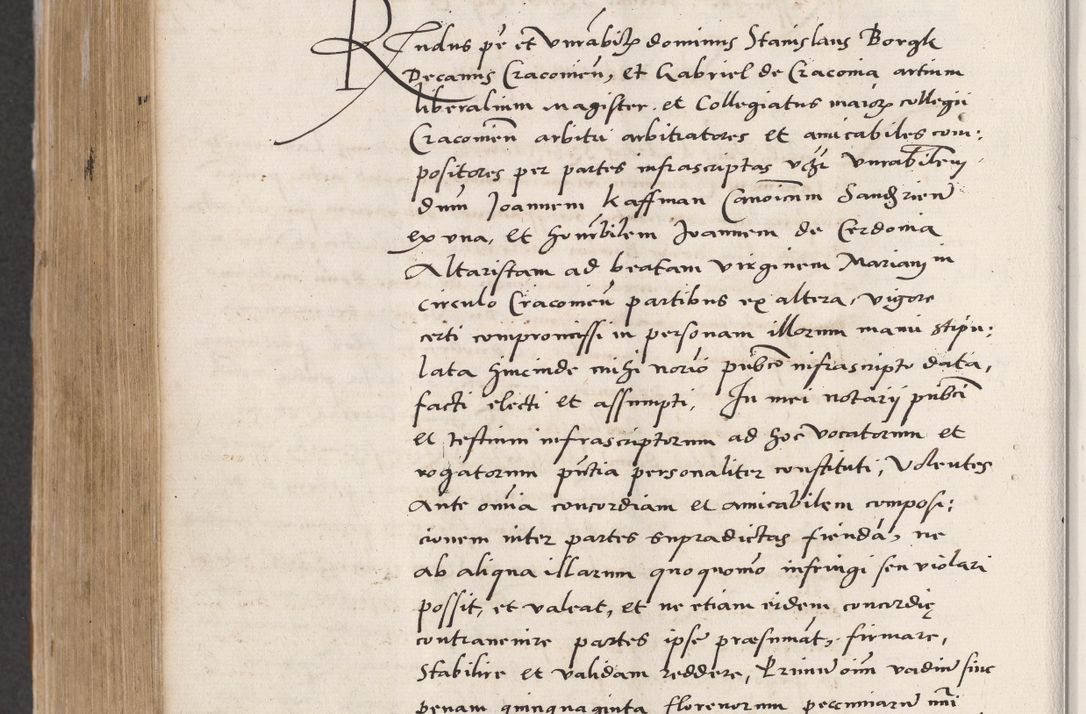 Rndus pr̃ et Vnrabiłꝫ dominus Stanislaus Borgk
Decanus Cracovieñ, et Gabriel de Cracovia artium
liberalium magister et Collegiatus maioꝝ collegii
Cracovieñ arbitri arbitratores et amicabiles com:
positores per partes infrascriptas Vnrabilem
dnm̃ Joannem Kaffman Canonicum Sandzrień
ex una, et honorabilem Joannem de Cerdonia
Altaristam ad beatam virginem Mariam in
circulo Cracovień partibus ex altera, vigore
certi compromissi in personam illorum manu stipu:
lata hincinde mihi norio publico infrascripto data,
facti electi et assumpti, In mei notarij publici
et testium infrascriptorum ad hoc vocatorum et
rogatorum pñtia personaliter constituti, Volentes
Ante omia concordiam et amicabilem composi:
cionem inter partes supradictas fienda, ne
ab aliqua illarum quoquomo infringi seu violari
possit, et valeat, et ne etiam eidem concordię
contrauenire partes ipse præsumat, firmare,
Stabilire et validam reddere, Primu oim vadiu siue
penam quinquaginta florenorum pecuniarũ